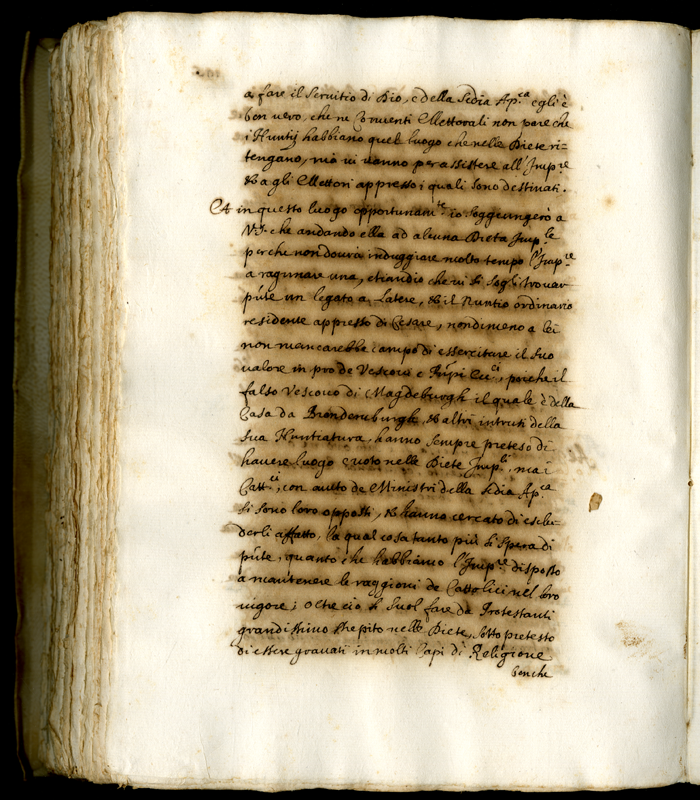 a fare il servitio di Dio, e della Sedia Ap.ca egli è
ben vero, che ne Conuenti Elettorali non pare che
i Nuntij habbiano quel luogo che nelle Diete ri=
tengano, mà ui uanno per assistere all' Imp.re
& a gli Elettori appresso i quali sono destinati.
Et in questo luogo opportunam.te io soggeungerò a
V.S. che andando ella ad alcuna Dieta Imp.le
perche non dourà indugiare molto tempo l'Imp.re
a ragunare una, etiandio che ui si sogli trouar
p̃nte un legato a Latere, & il Nuntio ordinario
residente appresso di Cesare, nondimeno a lei
non mancarebbe campo di essercitare il suo
ualore in pro de Vescoui e Prñpi Ecc.ci, poiche il
falso Vescouo di Magdeburgh il quale è della
Casa da Brondemburgh, & altri intrusi della
sua Huntiatura, hanno sempre preteso di
hauere luogo e uoto nelle Diete Imp.li, ma i
Catt.ci, con aiuto de Ministri della Sedia Ap.ca
si sono loro opposti, & hanno cercato di esclu=
derli affatto, la qual cosa tanto più si spera di
p̃nte, quanto che habbiamo l'Imp.re disposto
a mantenere le raggioni de Cattolici nel loro
uigore; oltre ciò si suol fare da Protestanti
grandissimo strepito nelle Diete, sotto pretesto
di essere grauati in molti Capi di Religione
benche